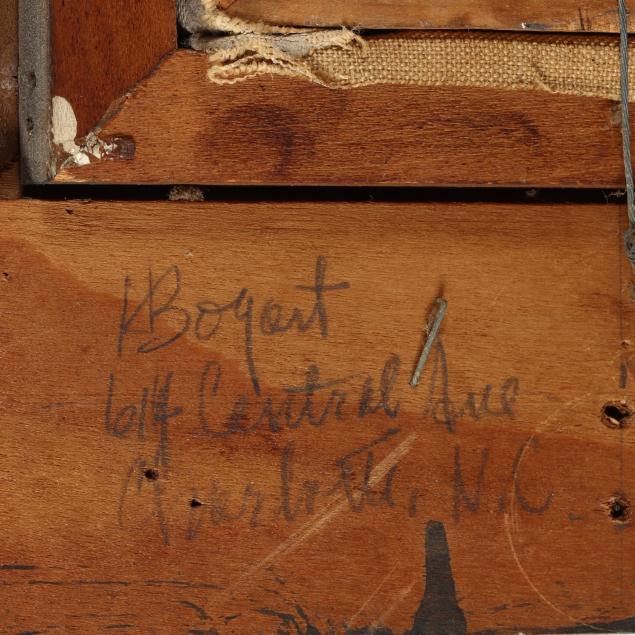 Bogart
614 Central Ave
Charlotte, N.C.